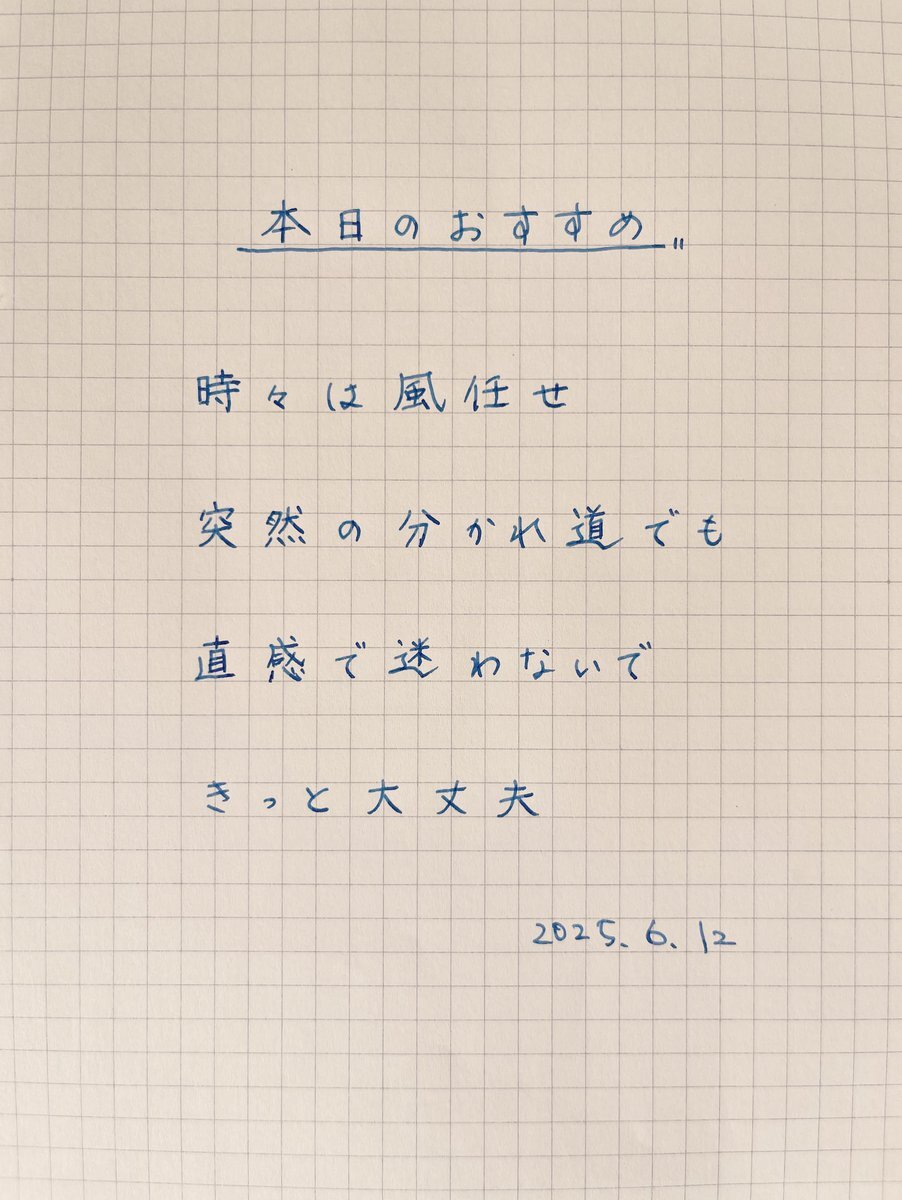 本日のおすすめ"
時々は風任せ
突然の分かれ道でも
直感で迷わないで
きっと大丈夫
2025.6.12